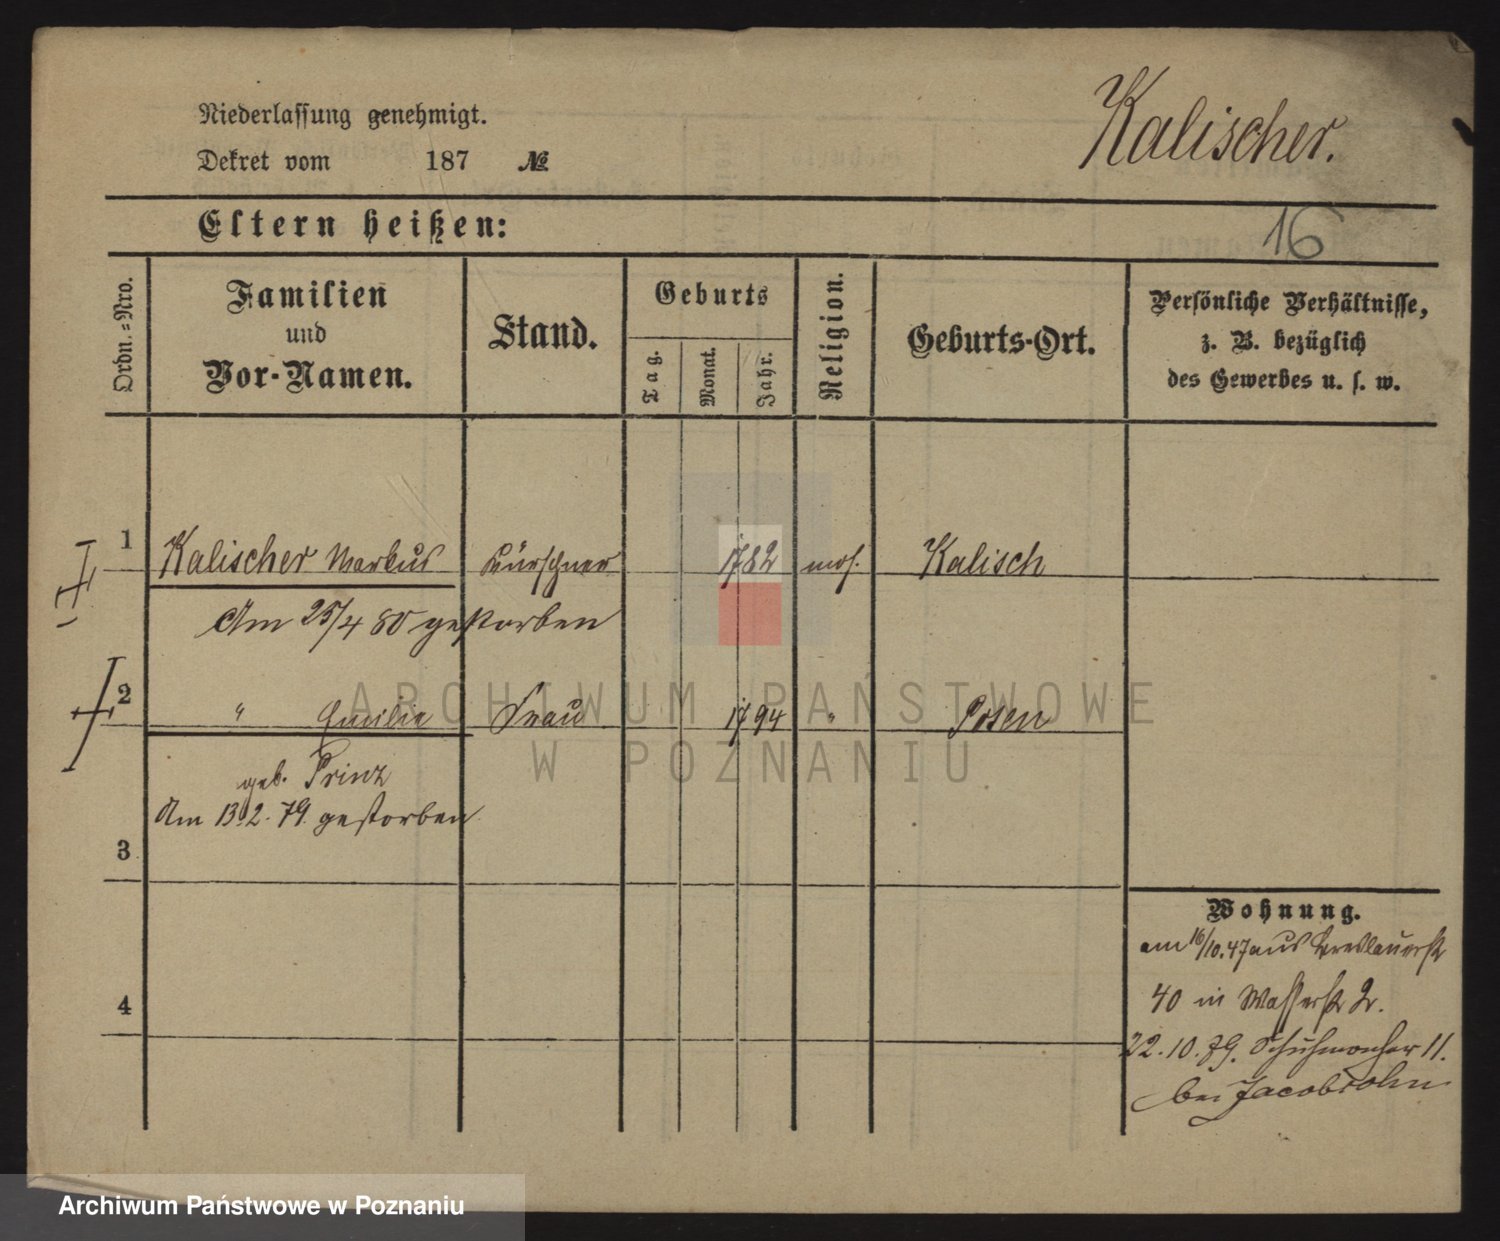 Kalischer.
Niederlassung genehmigt.
Dekret vom 187 №
Eltern heißen:
16
Ordn.=Nro.
Familien
und
Vor-Namen.
Stand.
Geburts
Tag.
Monat.
Jahr.
Religion.
Geburts-Ort.
Persönliche Verhältnisse,
z. B. bezüglich
des Gewerbes u. s. w.
1 Kalischer Markus Kürschner 1782 mos. Kalisch
Am 25/4 80 gestorben
2 " Emilie Frau 1794 " Posen
geb. Prinz
Am 13.2.79. gestorben
3
4
Wohnung.
am 16/10.47 aus Breslauerstr
40 in Wasserstr 2.
22.10.79. Schuhmacher 11.
bei Jacobsohn
ARCHIWUM PAŃSTWOWE
W POZNANIU
Archiwum Państwowe w Poznaniu